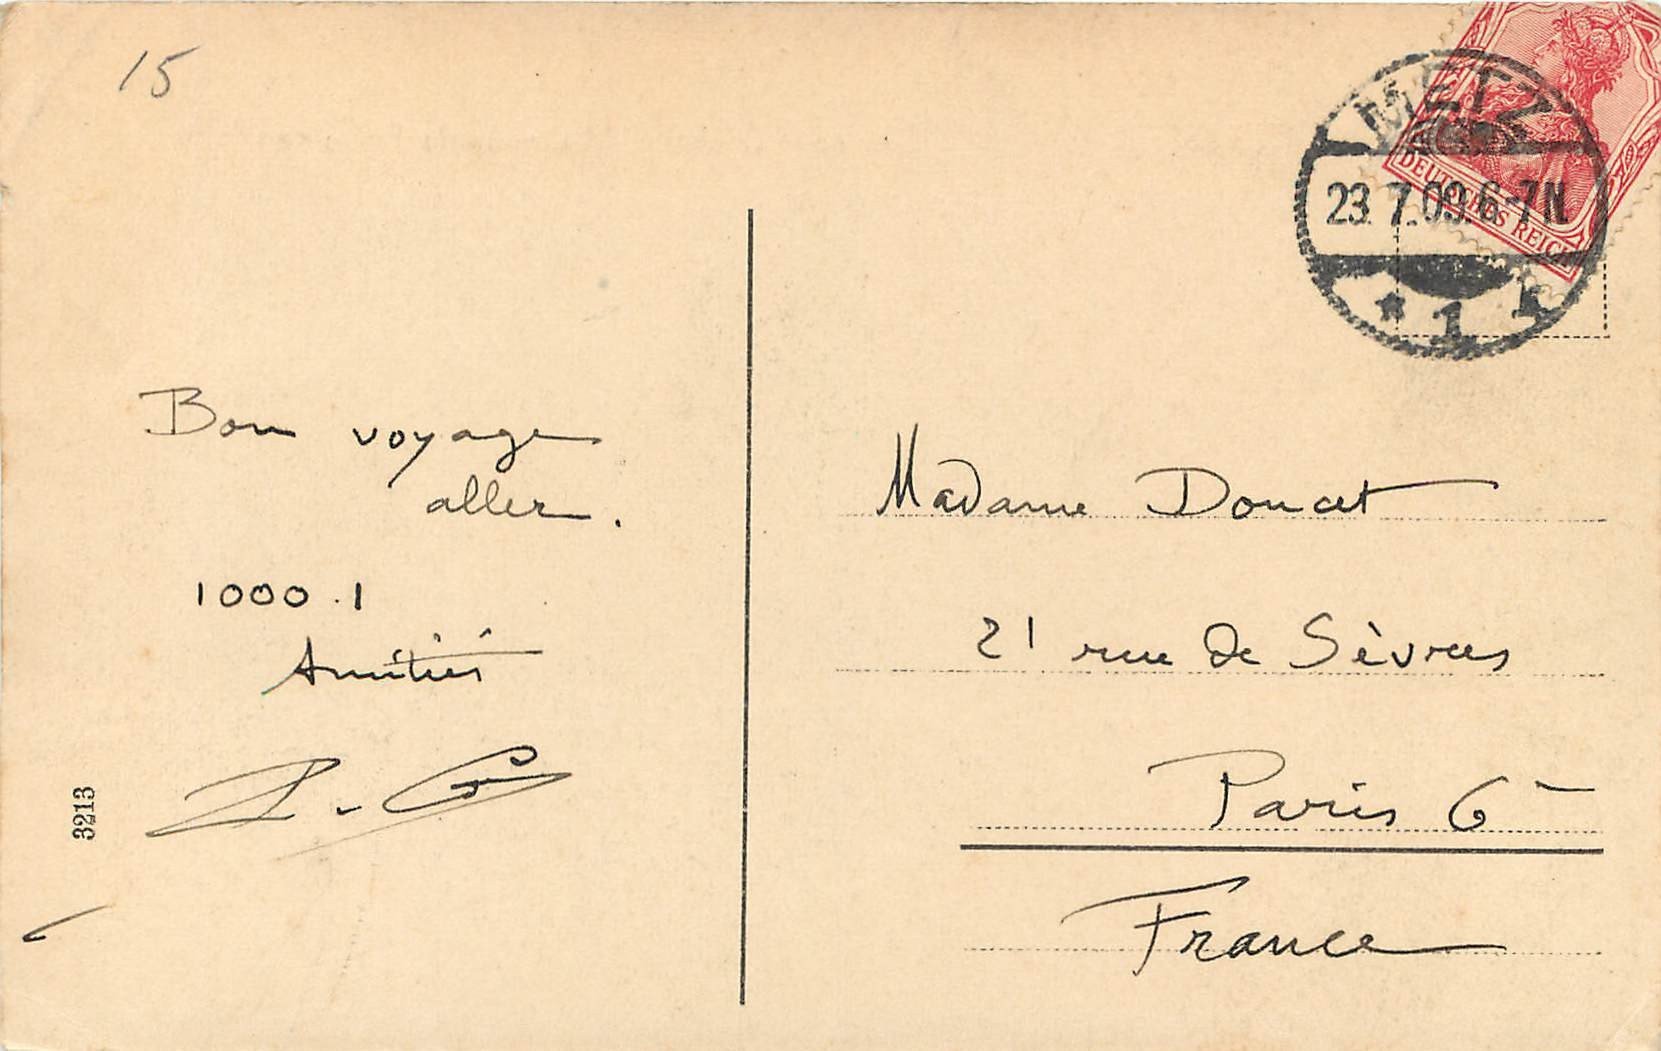 15
METZ
23.7.09.6-7N
* 1 *
DEUTSCHES REICH
Bon voyage
aller.
1000.1
Amitiés
3213
Madame Doucet
21 rue de Sèvres
Paris 6
France